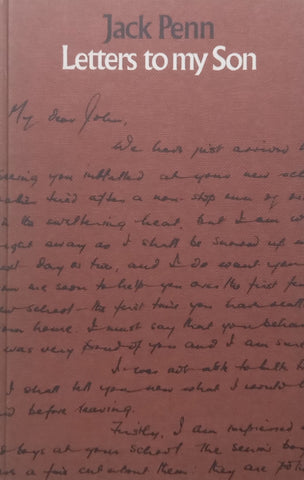 Jack Penn
Letters to my Son
My dear John,
We have just arrived
seeing you installed at your new
tired after a non-stop run of
in the sweltering heat. But I am
right away as I shall be
day or two, and I do want you
soon to help you over the first
new school – the first time you have
own home. I must say that your
was very proud of you and I am sure
I was not able to talk
I shall tell you now what I would
before leaving.
Firstly, I am impressed
boys at your school. The senior boys
a fair
them: they are